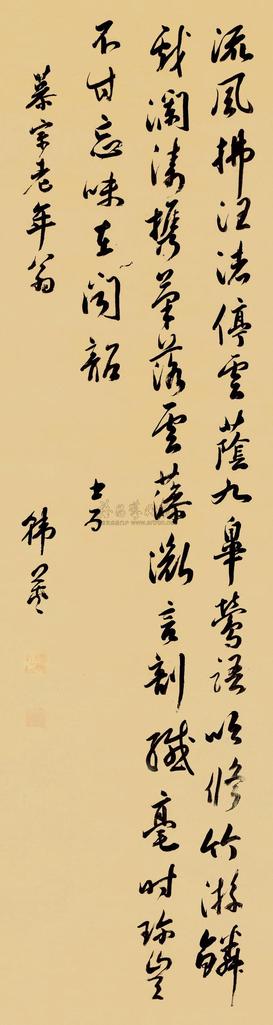 流風拂汪渚停雲蔭九皋鶯語吟修竹游鱗
戲瀾濤攜筆落雲藻微言剖纖毫時珍豈
不甘忘味在聞韶
慕宗老年翁
韓菼